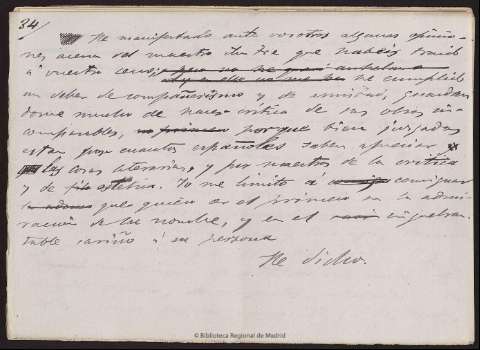 34/
He manifestado ante vosotros algunas opinio-
nes acerca del maestro ilustre que habeis traido
á vuestro seno,
he cumplido
un deber de compañerismo y de amistad, guardan
dome mucho de hacer crítica de sus obras in-
comparables, porque bien juzgadas
estan por cuantos españoles saben apreciar
las cosas literarias, y por maestros de la crítica
y de estetica. Yo me limito á consignar
que quiero ser el primero en la admi-
racion de su nombre, y en el inquebran-
table cariño á su persona
He dicho.
© Biblioteca Regional de Madrid